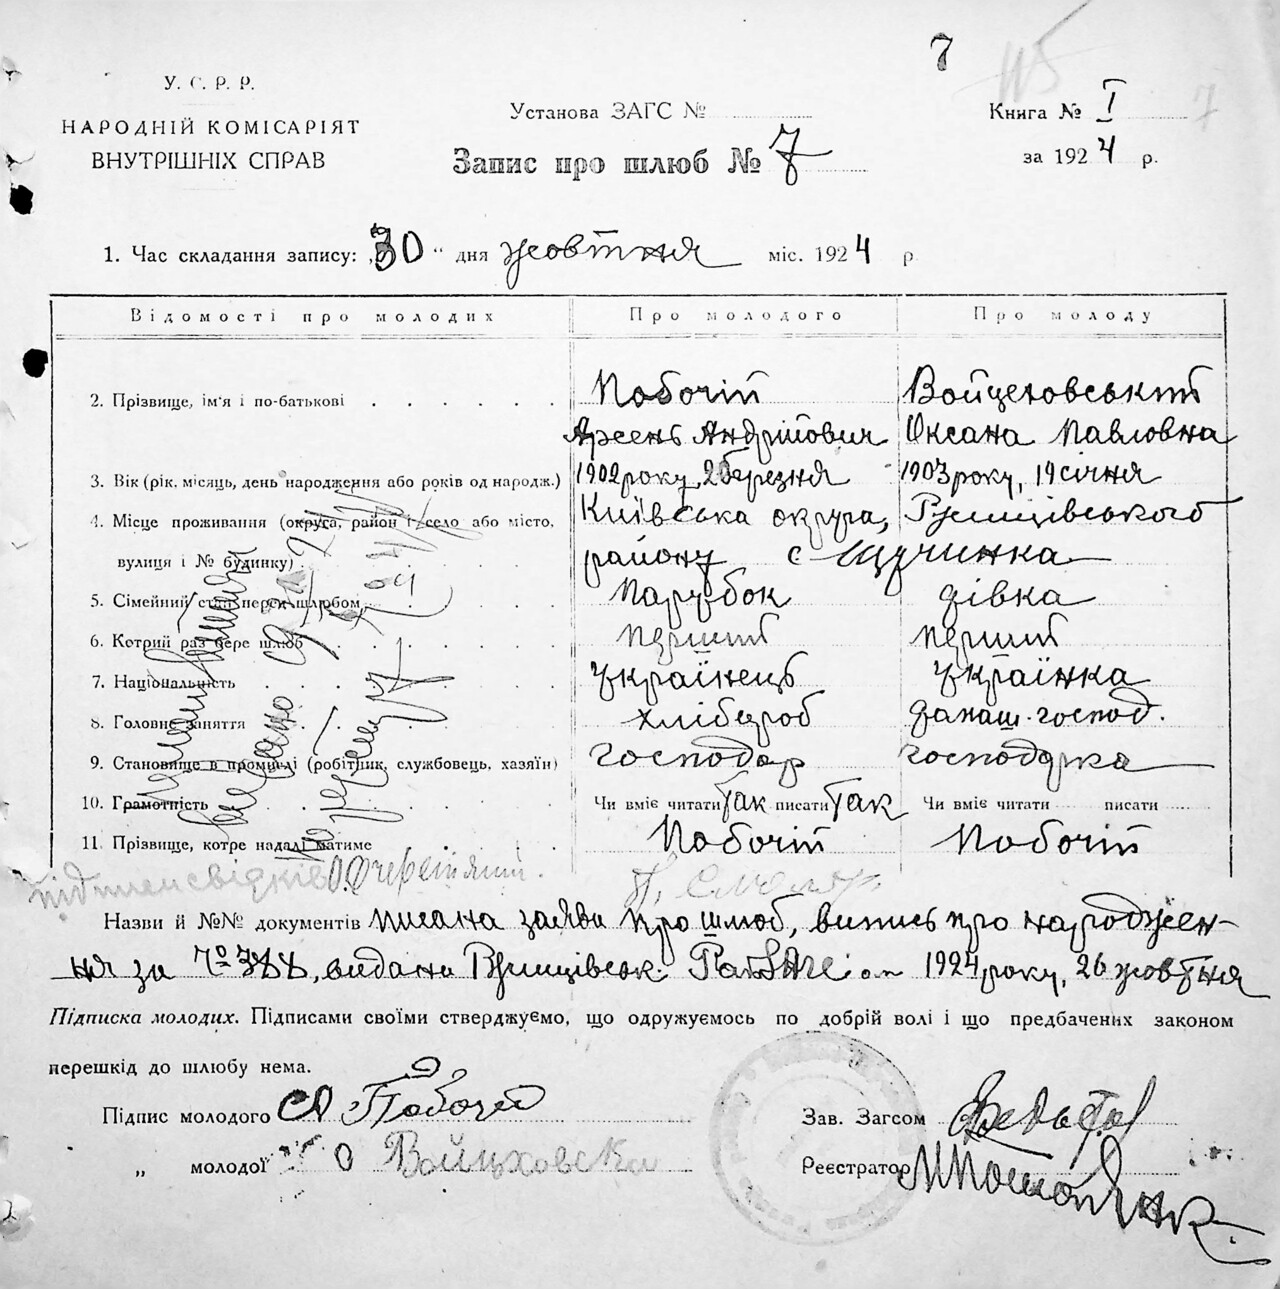 7
У. С. Р. Р.
НАРОДНІЙ КОМІСАРІЯТ
ВНУТРІШНІХ СПРАВ
Установа ЗАГС №
Запис про шлюб № 7
Книга № I
за 1924 р.
1. Час складання запису: „30“ дня жовтня міс. 1924 р
Відомості про молодих Про молодого Про молоду
2. Прізвище, ім'я і по-батькові Побочій Войцеховський
Арсень Андрійович Оксана Павловна
3. Вік (рік, місяць, день народження або років од народж.) 1902 року, 2 березня 1903 року, 19 січня
4. Місце проживання (округа, район і село або місто, Київська округа, Ржищівського
вулиця і № будинку) району с Щучинка
5. Сімейний стан перед шлюбом Парубок дівка
6. Котрий раз бере шлюб перший перший
7. Національність Українець Українка
8. Головне заняття хлібороб домаш. господ.
9. Становище в промислі (робітник, службовець, хазяїн) господар господарка
10. Грамотність Чи вміє читати так писати так Чи вміє читати писати
11. Прізвище, котре надалі матиме Побочій Побочій
підписи свідків О. Очеретяний. П. Смоляр.
Назви й №№ документів писана заява про шлюб, випись про народжен-
ня за №, видани Ржищівськ. 1924 року, 26 жовтня
Підписка молодих. Підписами своїми стверджуємо, що одружуємось по добрій волі і що предбачених законом
перешкід до шлюбу нема.
Підпис молодого Побочій
Зав. Загсом
„ молодої О Войцховска
Реєстратор